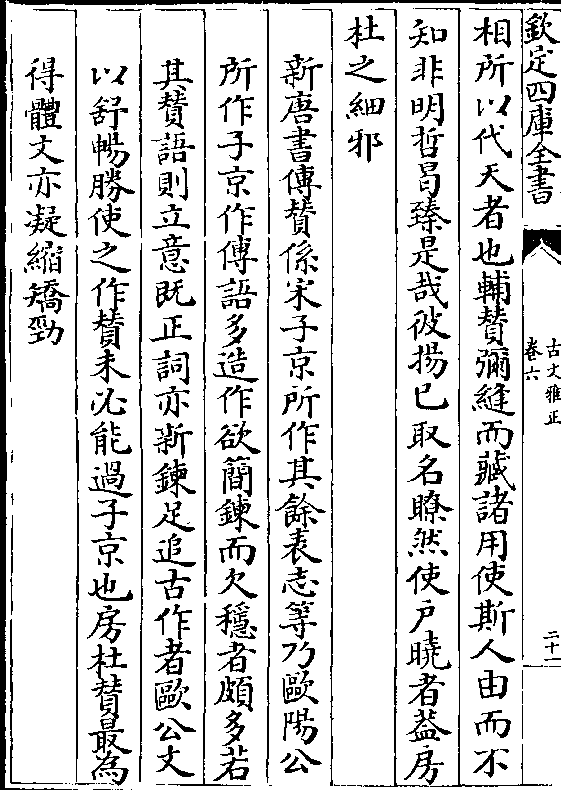 欽定四庫全書
古文雅正
卷六
二十一
相所以代天者也輔賛彌縫而藏諸用使斯人由而不
知非明哲曷臻是哉彼揚已取名瞭然使戶曉者葢房
杜之細邪
新唐書傳賛係宋子京所作其餘表志等乃歐陽公
所作子京作傳語多造作欲簡鍊而欠穩者頗多若
其賛語則立意既正詞亦新鍊足追古作者歐公文
以舒暢勝使之作賛未必能過子京也房杜賛最為
得體文亦凝縮矯勁